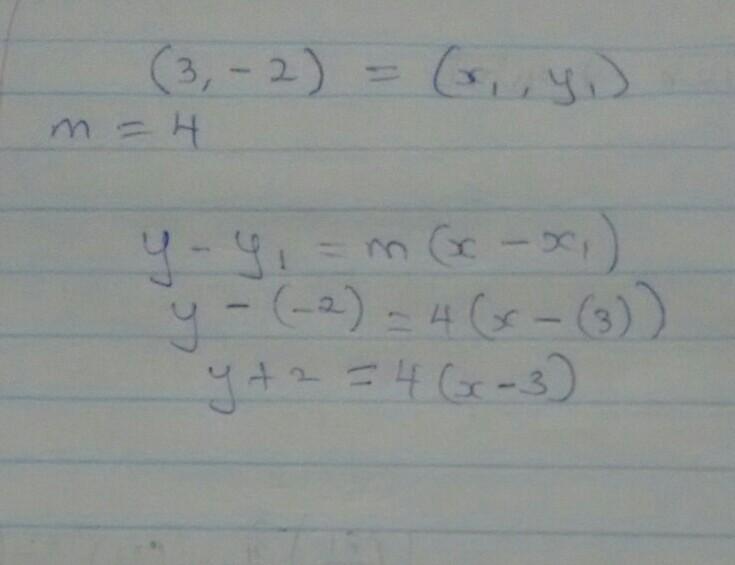 (3, -2) = (x₁, y₁)
m = 4
y - y₁ = m(x - x₁)
y - (-2) = 4(x - (3))
y + 2 = 4(x - 3)